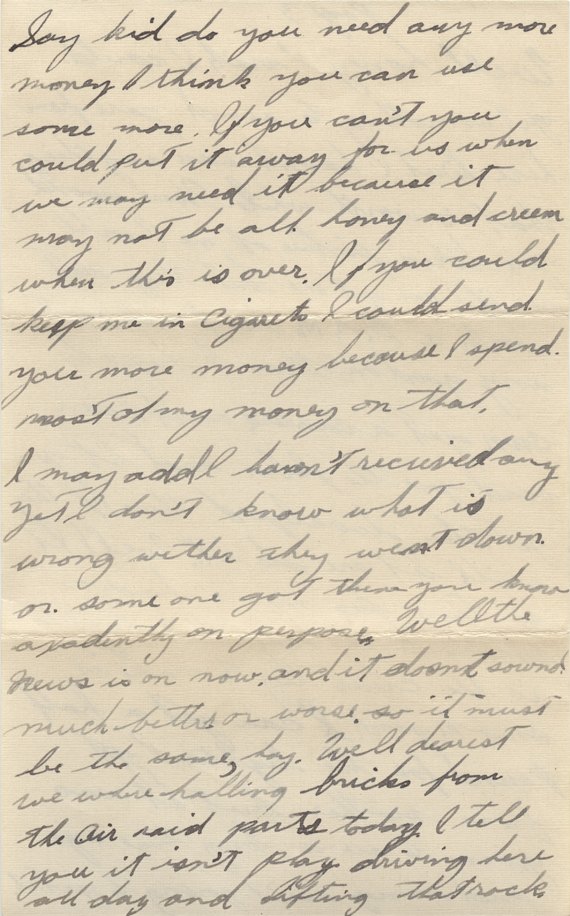 Say kid do you need any more
money I think you can use
some more. If you can't you
could put it away for us when
we may need it because it
may not be all honey and creem
when this is over. If you could
keep me in Cigarets I could send
you more money because I spend.
most of my money on that.
I may add I haven't recieved any
yet I don't know what is
wrong wether they went down.
or. some one got them you know
axadently on perpose. Well the
News is on now, and it dosnt sound
much better or worse. so it must
be the same, hay. Well dearest
we where halling bricks from
the air raid parts today. I tell
you it isn't play driving here
all day and lifting that rock